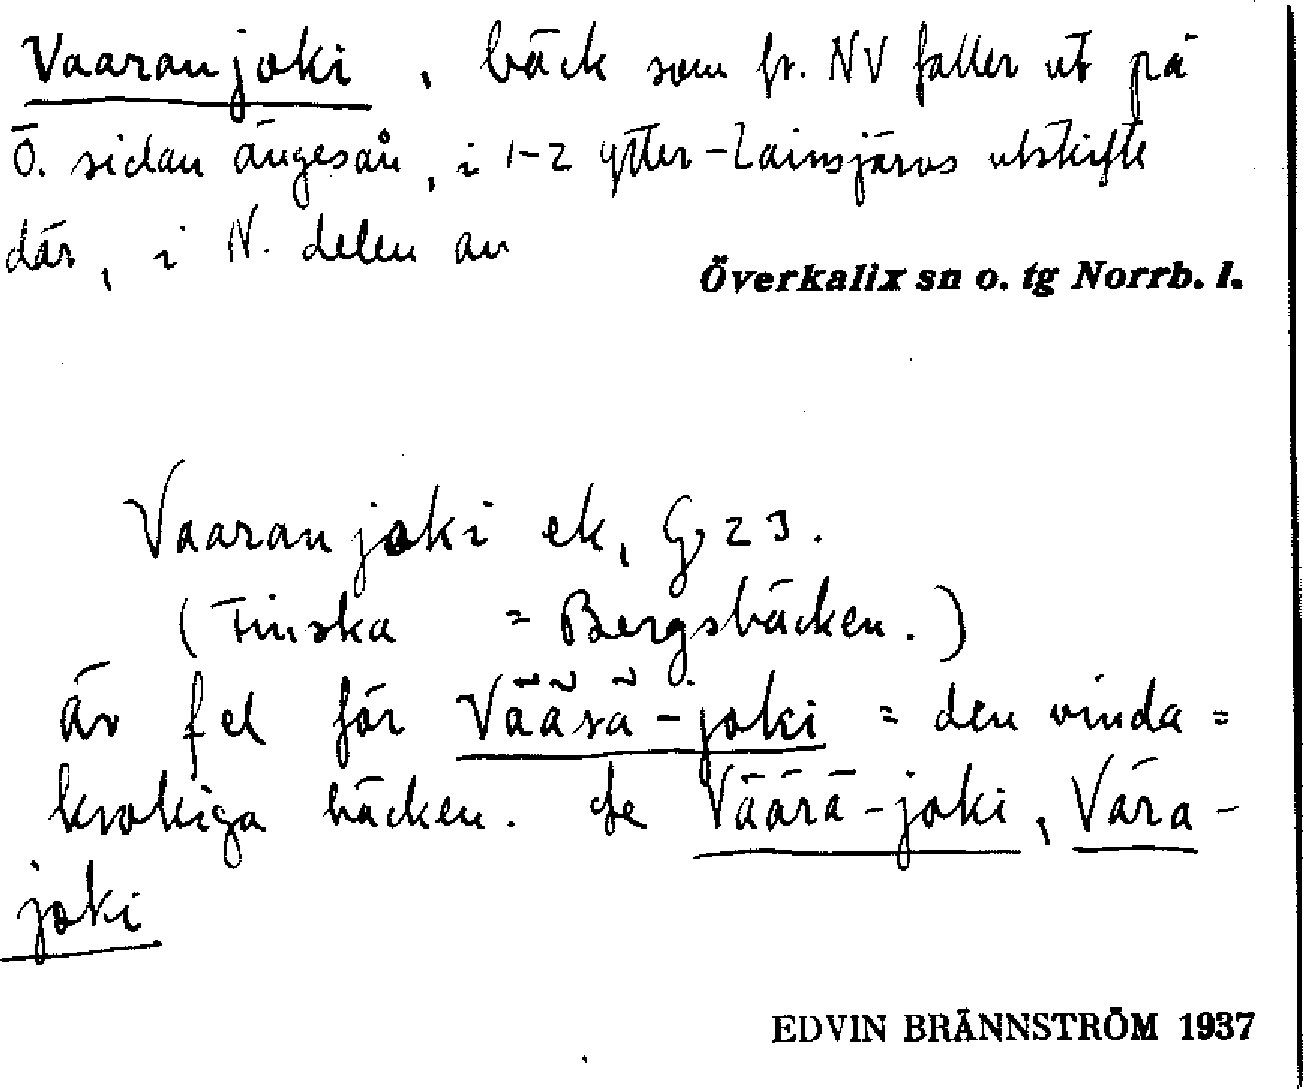 Vaaranjoki, bäck som fr. NV faller ut på
Ö. sidan ängesån, i 1-2 ytter-Lainsjärvs utskifte
där, i N. delen av
Överkalix sn o. tg Norrb. l.
Vaaranjoki ek, G 23.
(Finska = Bergsbäcken.)
är fel för Väärä-joki = den vinda =
krokiga bäcken. Se Väärä-joki, Vära-
joki
EDVIN BRÄNNSTRÖM 1937